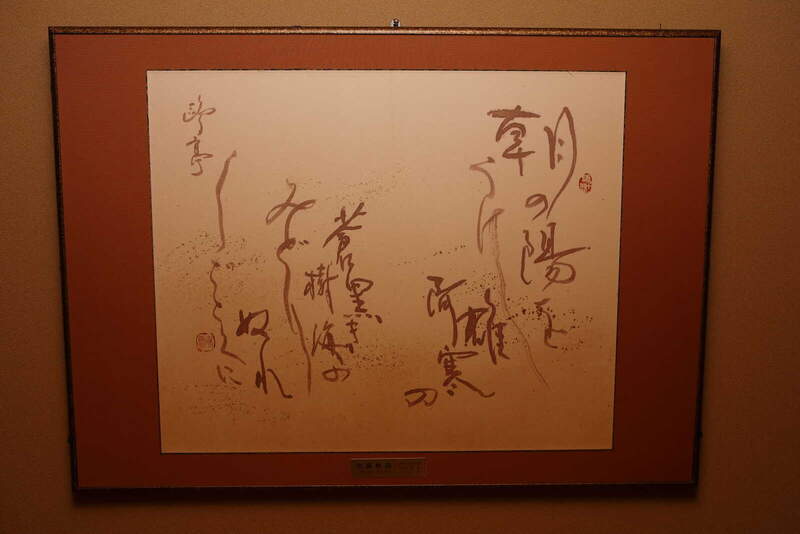 朝の陽を
うけ
雄阿寒の
蒼黒き
樹海の
みどり
ぬれ
しごとくに
亭